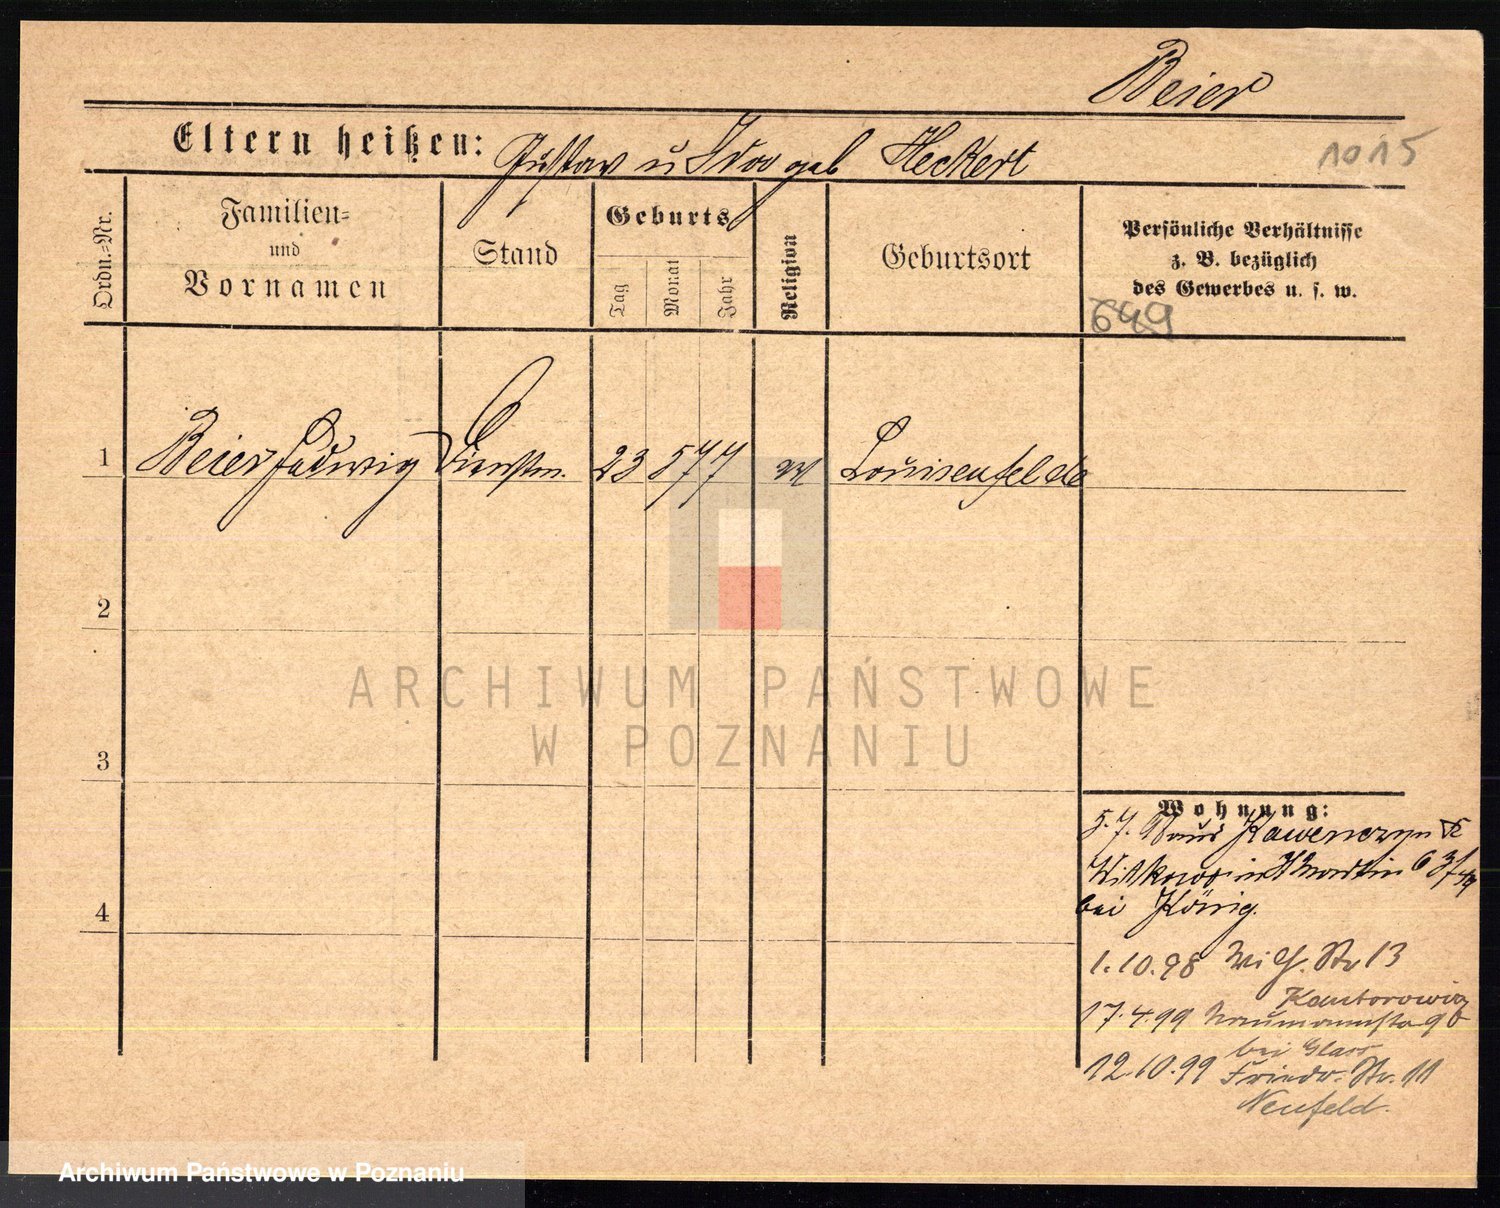 Beier
1015
Eltern heißen: Gustav u Ida geb Heckert
Ordn.=Nr.
Familien=
und
Vornamen
Stand
Geburts
Tag
Monat
Jahr
Religion
Geburtsort
Persönliche Verhältnisse
z. B. bezüglich
des Gewerbes u. s. w.
649
1 Beier Hedwig Dienstm. 23 5 77 Louisenfelde
2
3
4
ARCHIWUM PAŃSTWOWE
W POZNANIU
Wohnung:
5.7. aus Kawenczyn
Witkowo in Martin 63
bei König.
1.10.98 Wilh. Str 13
Kantorowicz
17.4.99 Naumannstr 9
bei Glass
12.10.99 Friedr. Str. 11
Neufeld.
Archiwum Państwowe w Poznaniu